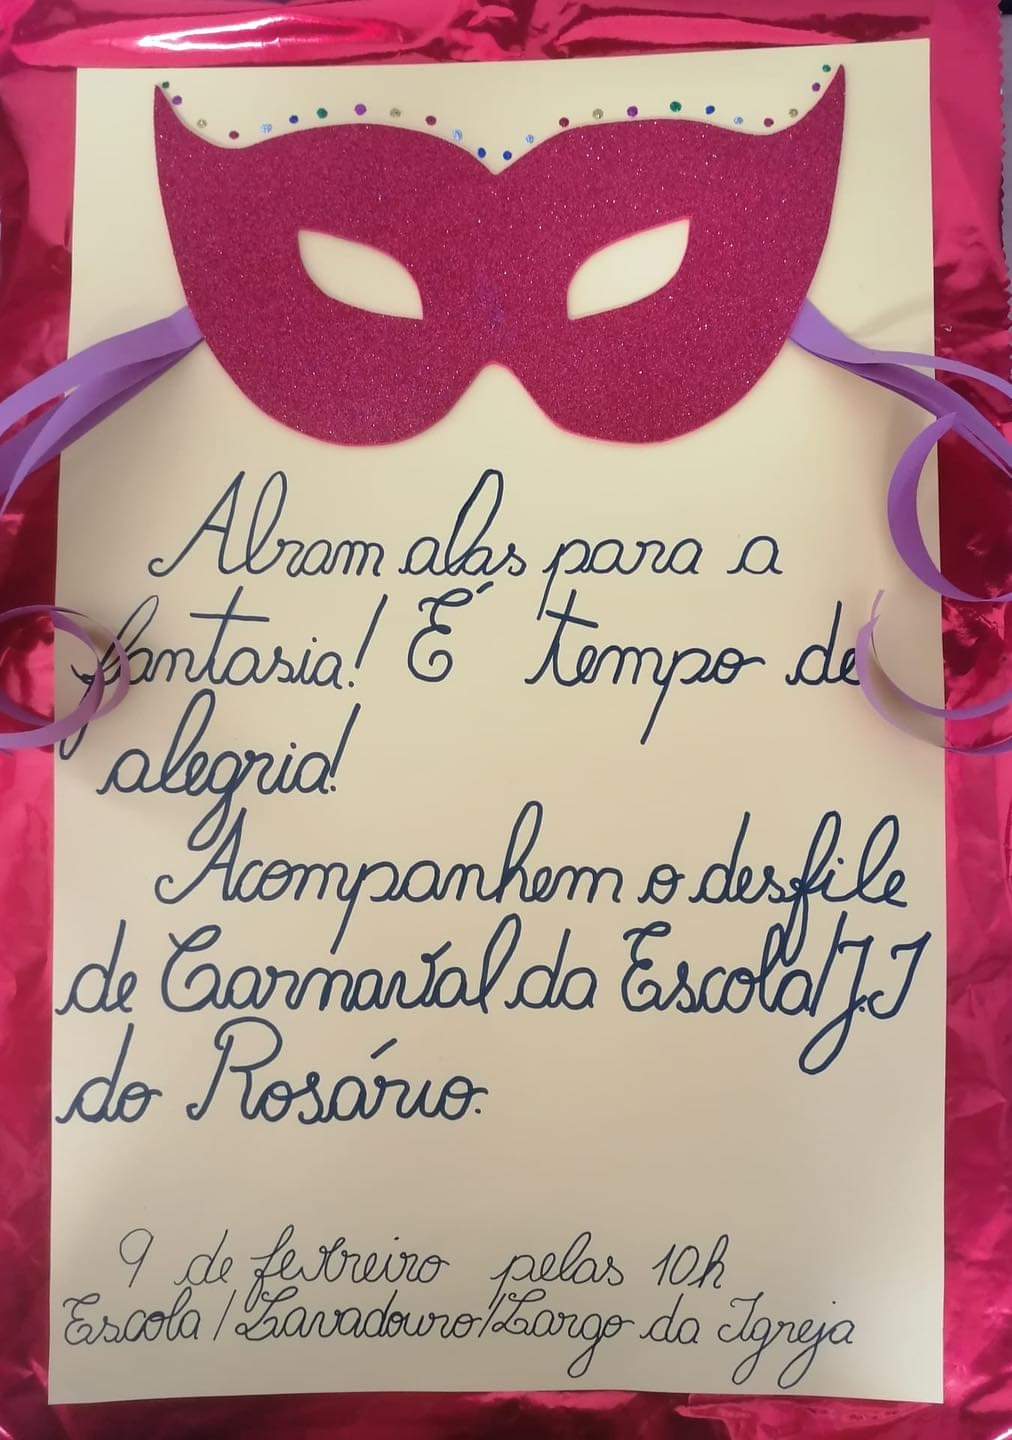 Abram alas para a
fantasia! É tempo de
alegria!
Acompanhem o desfile
de Carnaval da Escola/J.I
do Rosário.
9 de fevereiro pelas 10h
Escola/Lavadouro/Largo da Igreja